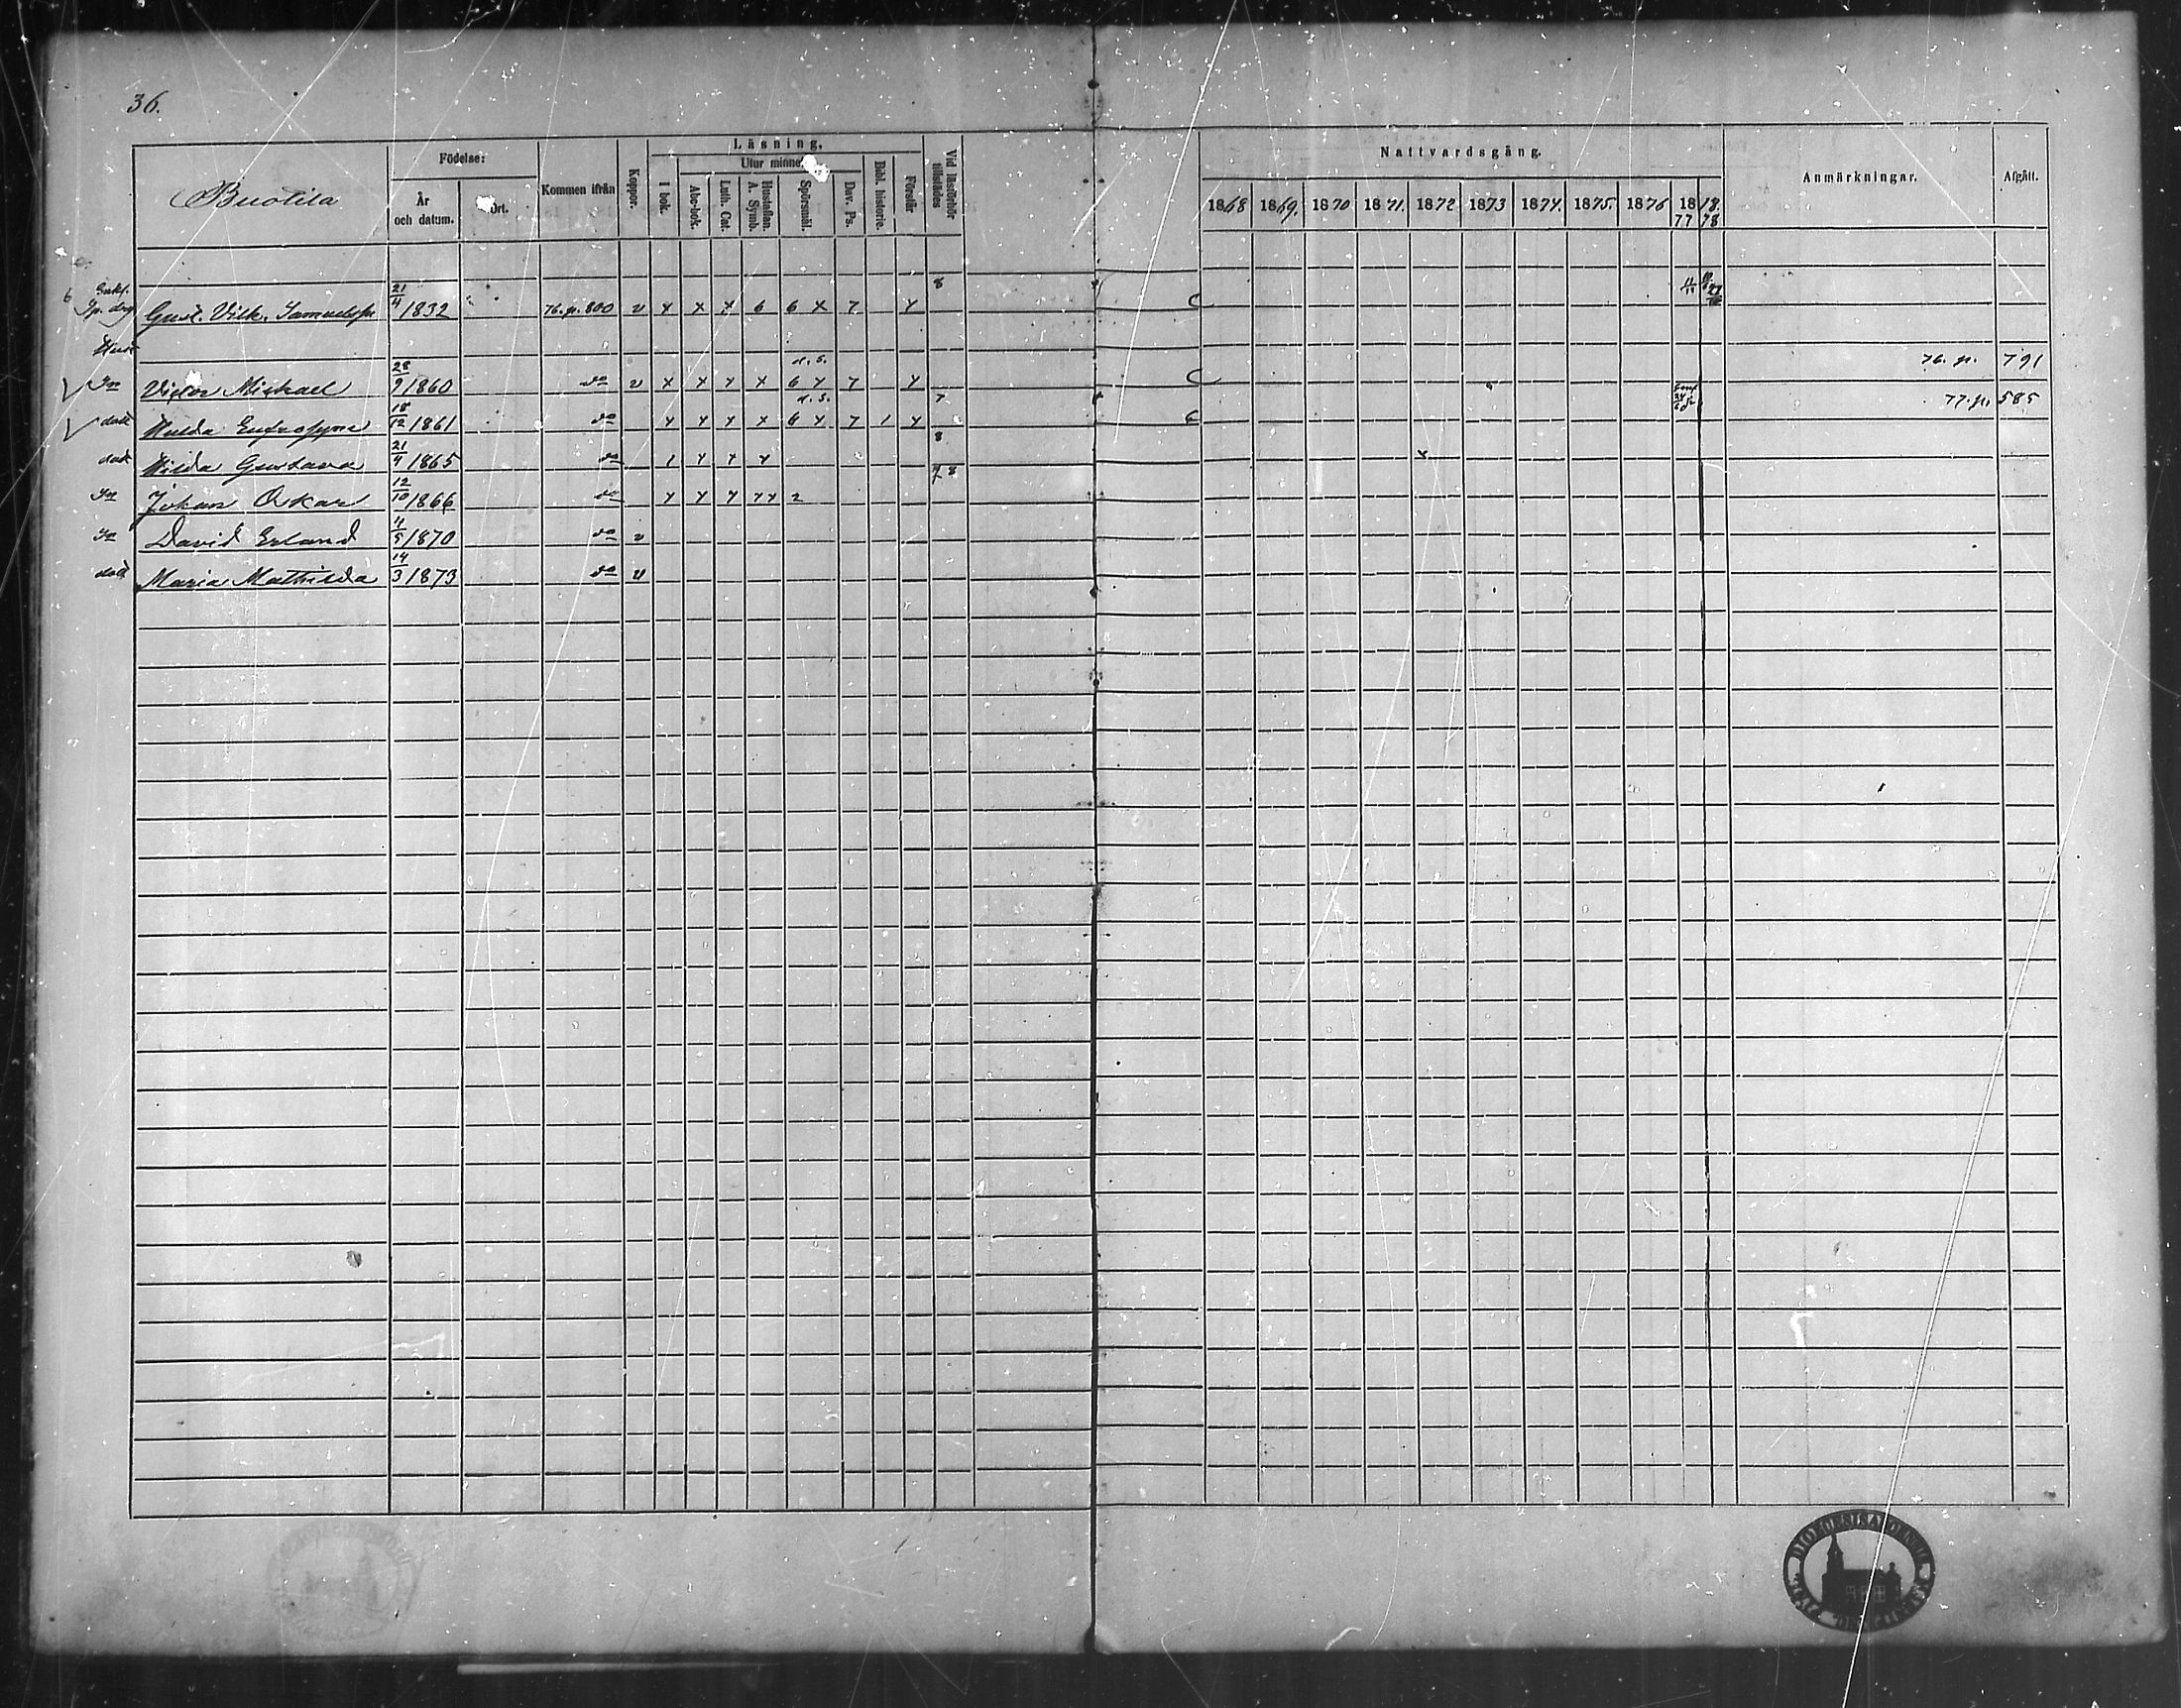 36.
Buotila
Födelse:
År och datum.
Ort.
Kommen ifrån
Koppor.
Läsning.
I bok.
Utur minnet
Abc-bok.
Luth. Cat.
Hustaflan. A. Symb.
Spörsmål.
Dav. Ps.
Bibl. historie.
Förstår
Vid läsförhör tillstädes
Nattvardsgång.
1868 1869. 1870 1871. 1872 1873 1874. 1875. 1876 1877 1878
Anmärkningar.
Afgått.
6 Gust. Vilh. Samuelsson 21/4 1832 76. p. 800 v x x x 6 6 x 7 x
Hust
Sn Victor Mickael 28/9 1860 do v x x x x 6 x 7 x 76. p. 791
dott Hulda Eufrosyne 18/12 1861 do x x x x 6 x 7 1 x 7 77. p. 585
dott Hilda Gustava 21/4 1865 do 1 x x x 8
Sn Johan Oskar 12/10 1866 do x x x x x 2 7 8
Sn David Erland 4/5 1870 do v
dott Maria Mathilda 14/3 1873 do v